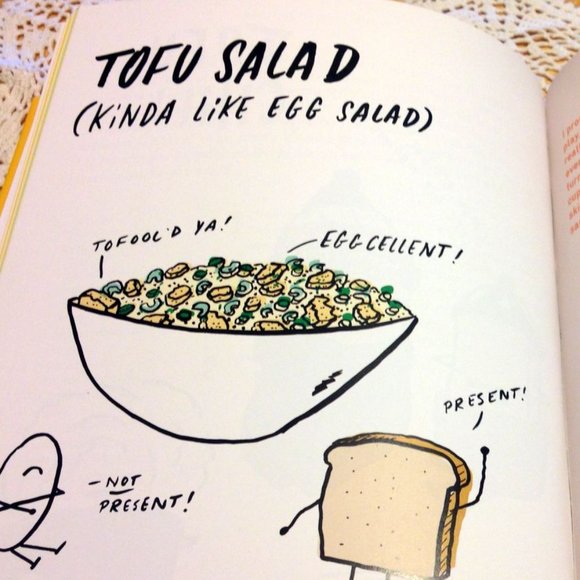 TOFU SALAD
(KiNDA LiKE EGG SALAD)
TOFOOL'D YA!
EGGCELLENT!
PRESENT!
- NOT
PRESENT!